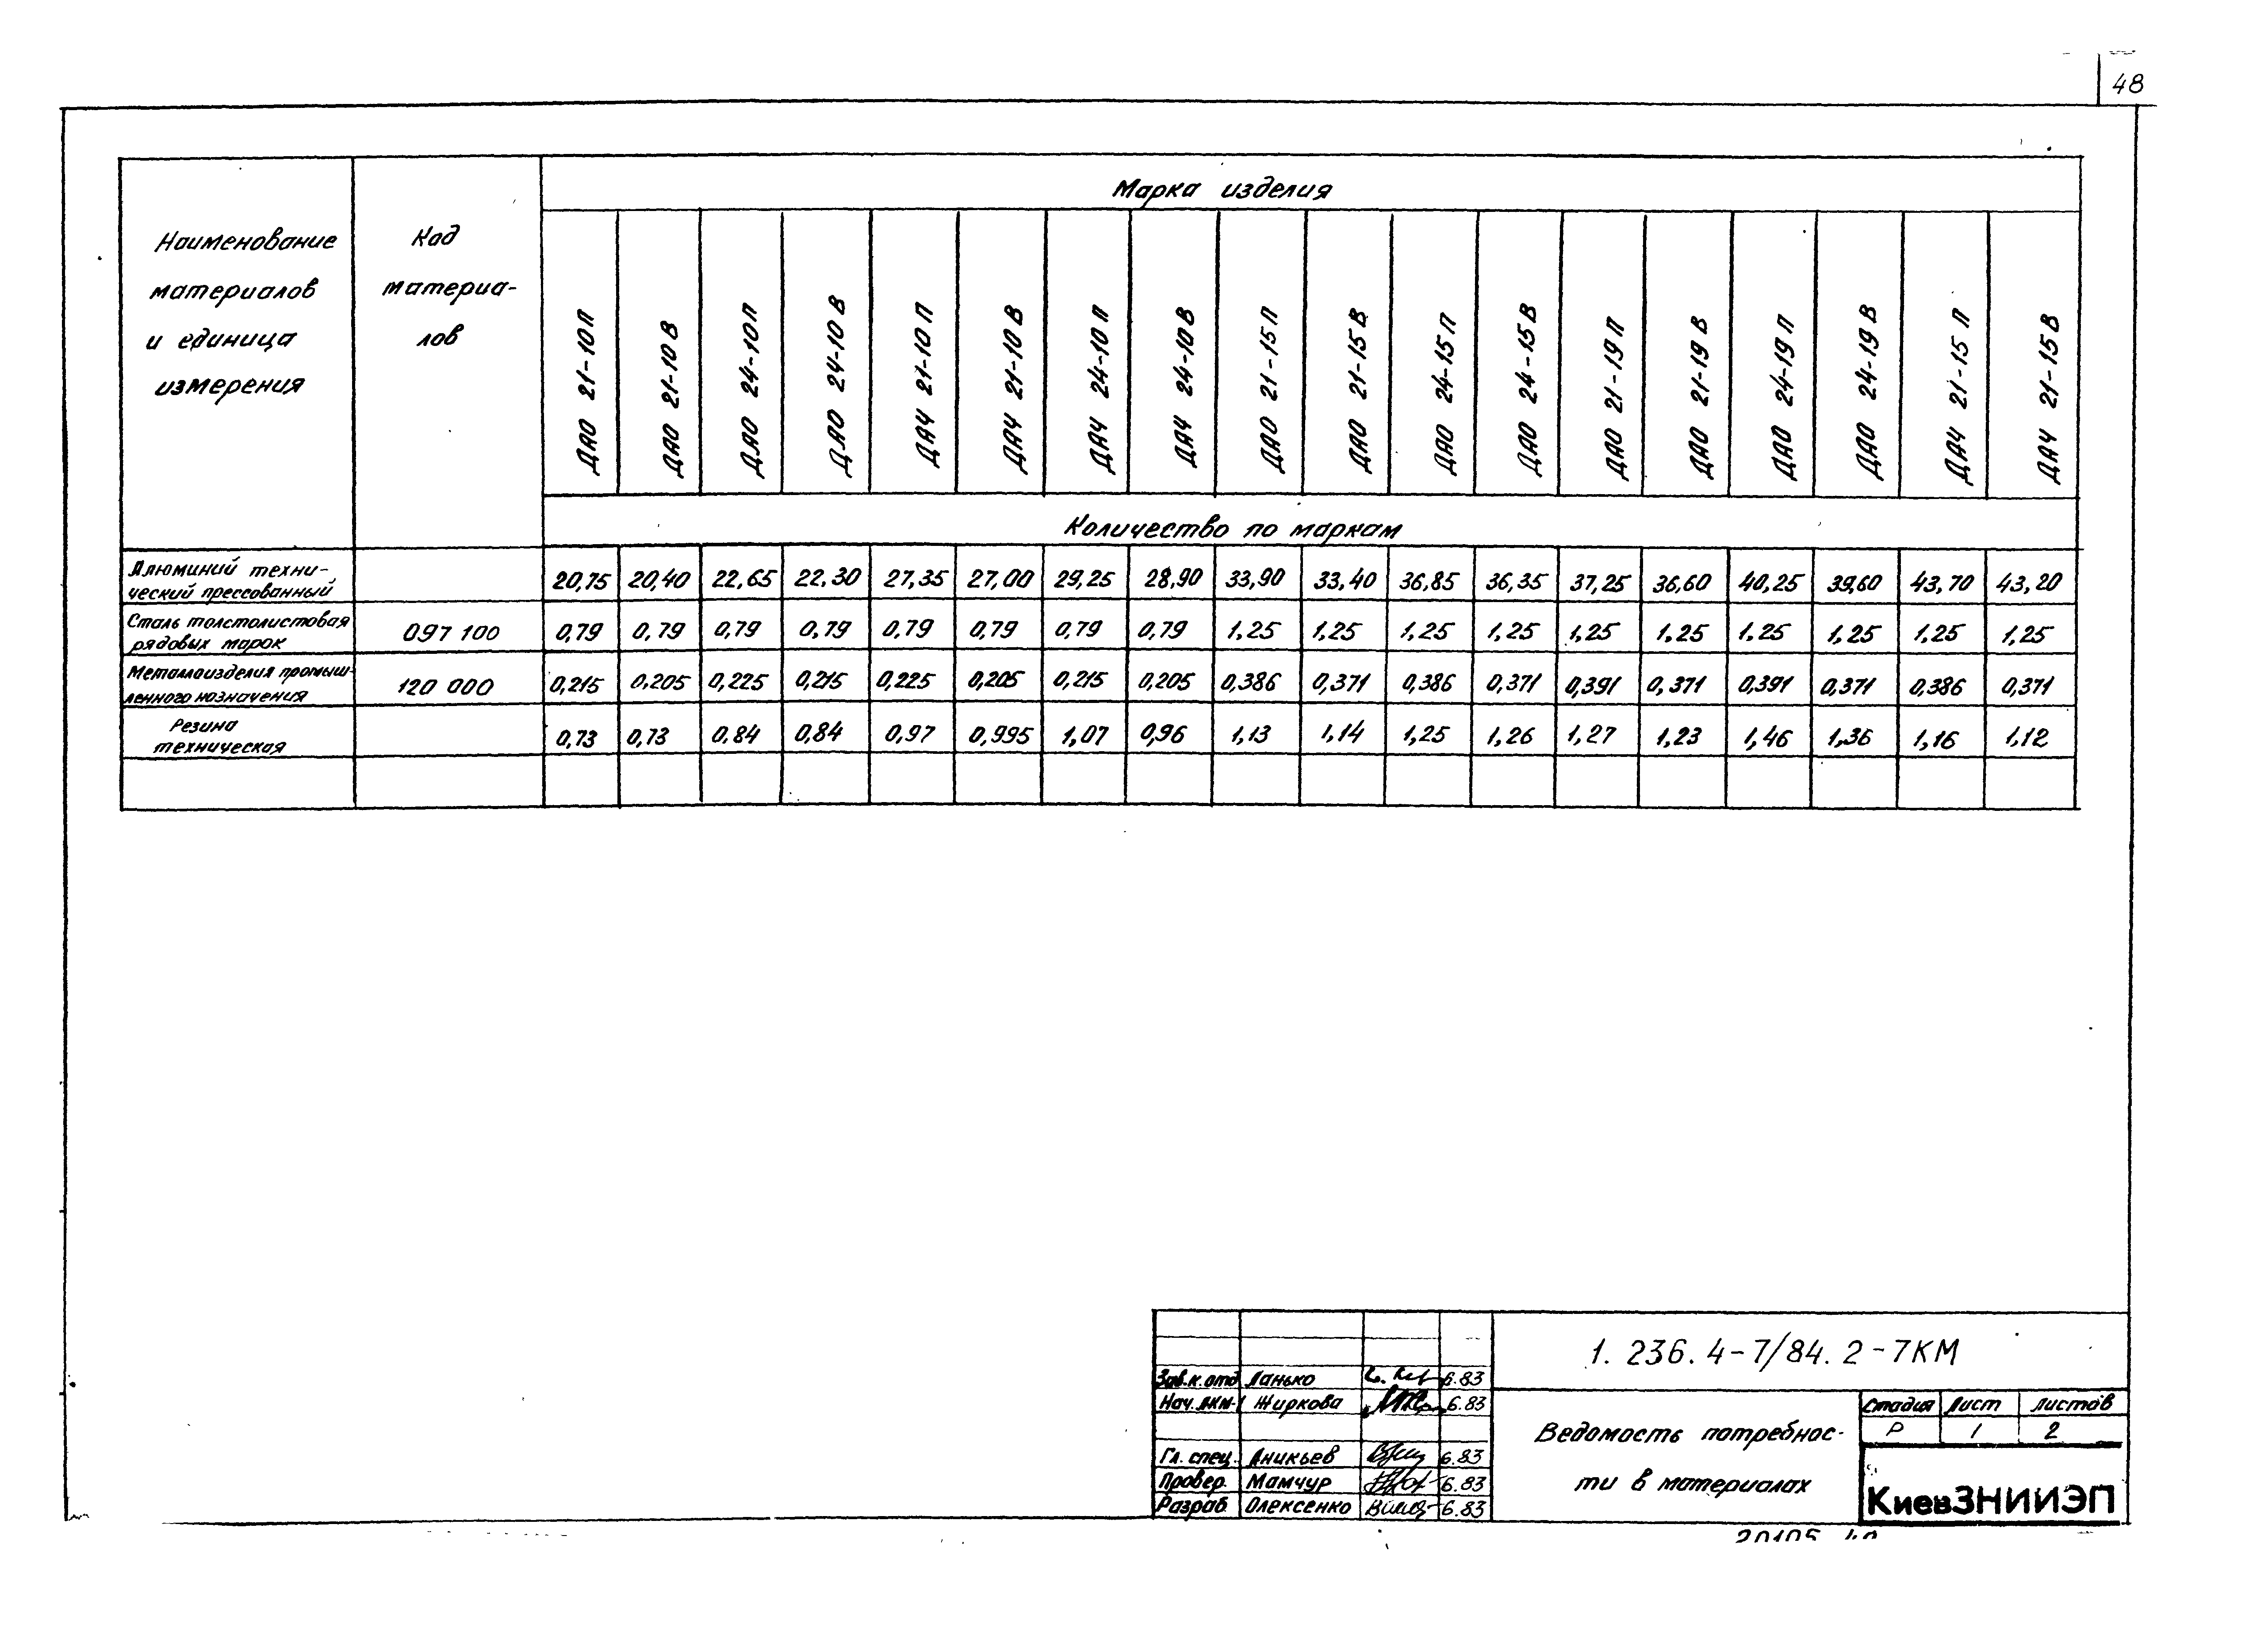 48
Марка изделия
Наименование материалов и единица измерения
Код материа-лов
ДАО 21-10П
ДАО 21-10В
ДАО 24-10П
ДАО 24-10В
ДАЧ 21-10П
ДАЧ 21-10В
ДАЧ 24-10П
ДАЧ 24-10В
ДАО 21-15П
ДАО 21-15В
ДАО 24-15П
ДАО 24-15В
ДАО 21-19П
ДАО 21-19В
ДАО 24-19П
ДАО 24-19В
ДАЧ 21-15П
ДАЧ 21-15В
Количество по маркам
Алюминий техни-
ческий прессованный
20,75 20,40 22,65 22.30 27,35 27,00 29,25 28,90 33,90 33,40 36,85 36,35 37,25 36,60 40,25 39,60 43,70 43,20
Сталь толстолистовая
рядовых марок
097 100 0,79 0,79 0,79 0,79 0,79 0,79 0,79 0,79 1.25 1,25 1,25 1,25 1,25 1.25 1.25 1,25 1,25 1,25
Металлоизделия промыш-
ленного назначения
120 000 0,215 0,205 0,225 0,215 0,225 0,205 0,215 0,205 0,386 0,371 0,386 0,371 0,391 0,371 0,391 0,371 0,386 0,371
Резина
техническая
0,73 0,73 0,84 0,84 0,97 0,995 1,07 0,96 1,13 1,14 1,25 1,26 1,27 1,23 1,46 1,36 1,16 1,12
1.236.4-7/84.2-7КМ
Зав.к.отд Ланько 6.83
Нач. Жиркова 6.83
Гл. спец. Аникьев 6.83
Провер. Мамчур 6.83
Разраб. Олексенко 6.83
Ведомость потребнос-
ти в материалах
Стадия Лист Листов
Р 1 2
КиевЗНИИЭП